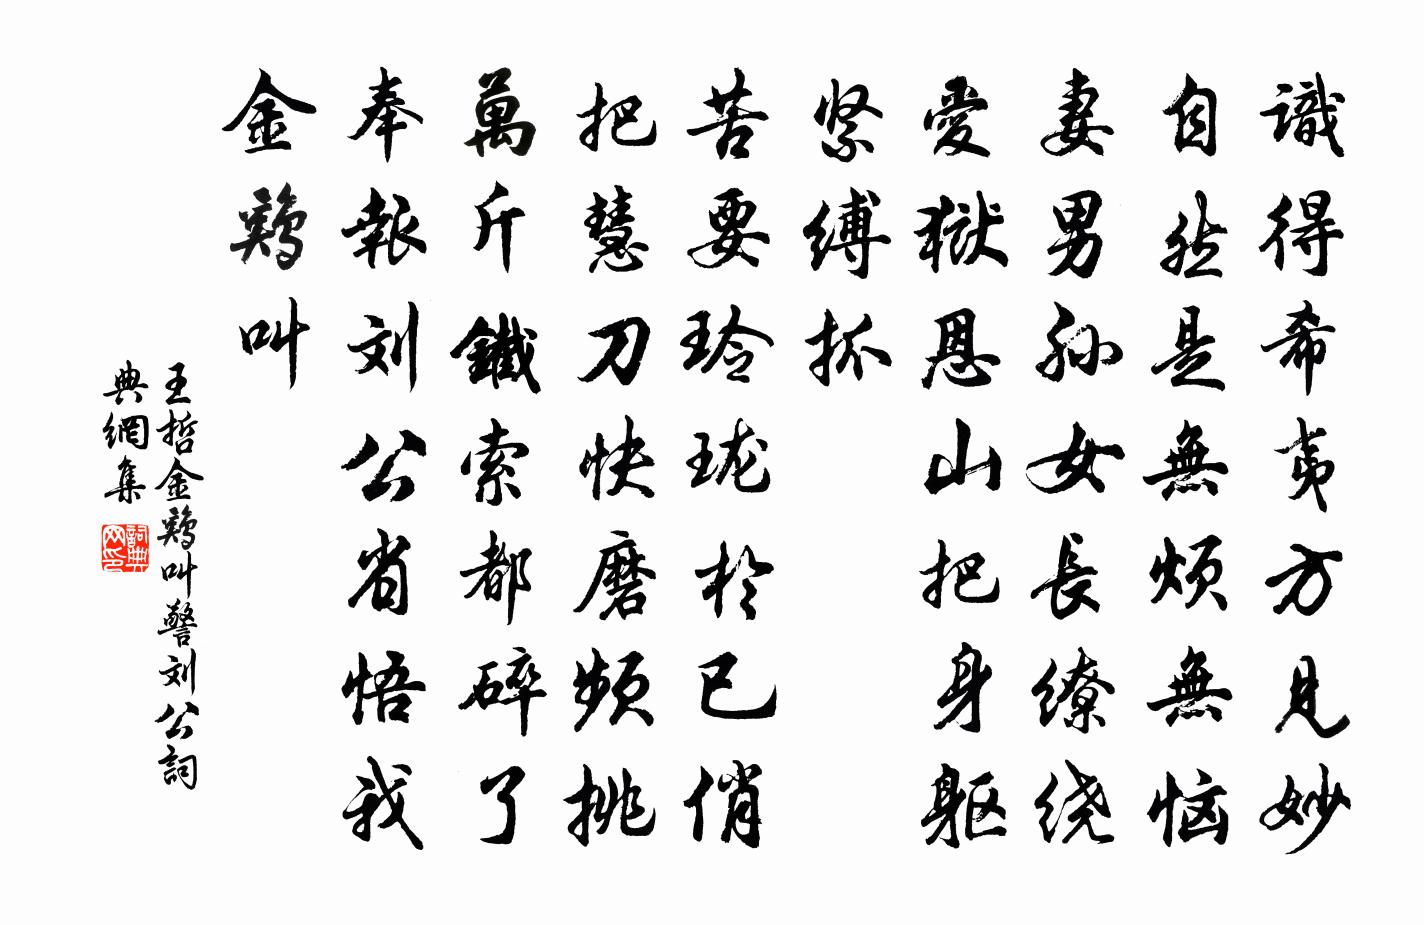 識得希夷方見妙
自然是無煩無恼
妻男孙女長缭绕
愛獄恩山把身躯
紧缚抓
苦要玲珑於已俏
把慧刀快磨頻挑
萬斤鐵索都碎了
奉報刘公省悟我
金鷄叫
王哲金鷄叫警刘公詞
典網集
詞典
网印